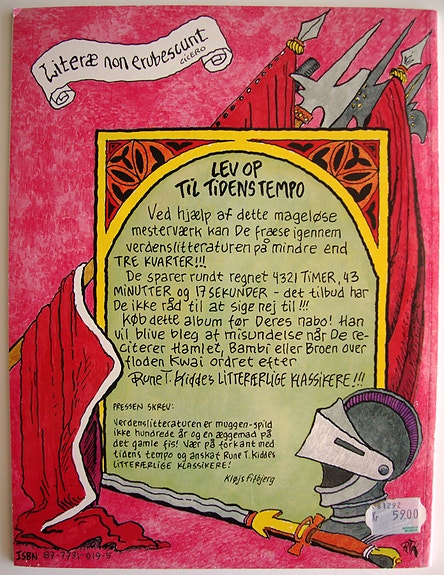 Literæ non erubescunt
CICERO
LEV OP
TIL TIDENS TEMPO
Ved hjælp af dette mageløse
mesterværk kan De fræse igennem
verdenslitteraturen på mindre end
TRE KVARTER!!!
De sparer rundt regnet 4321 TIMER, 43
MINUTTER og 17 SEKUNDER - det tilbud har
De ikke råd til at sige nej til!!!
Køb dette album før Deres nabo! Han
vil blive bleg af misundelse når De re-
citerer Hamlet, Bambi eller Broen over
floden Kwai ordret efter
Rune T. Kiddes LITTERÆRLIGE KLASSIKERE!!!
PRESSEN SKREV:
Verdenslitteraturen er muggen-spild
ikke hundrede år og en æggemad på
det gamle fis! Vær på forkant med
tidens tempo og anskaf Rune T. Kiddes
LITTERÆRLIGE KLASSIKERE!
Kløjs Fitbjerg
81292
Kr 59.00
ISBN 87-7731-019-5